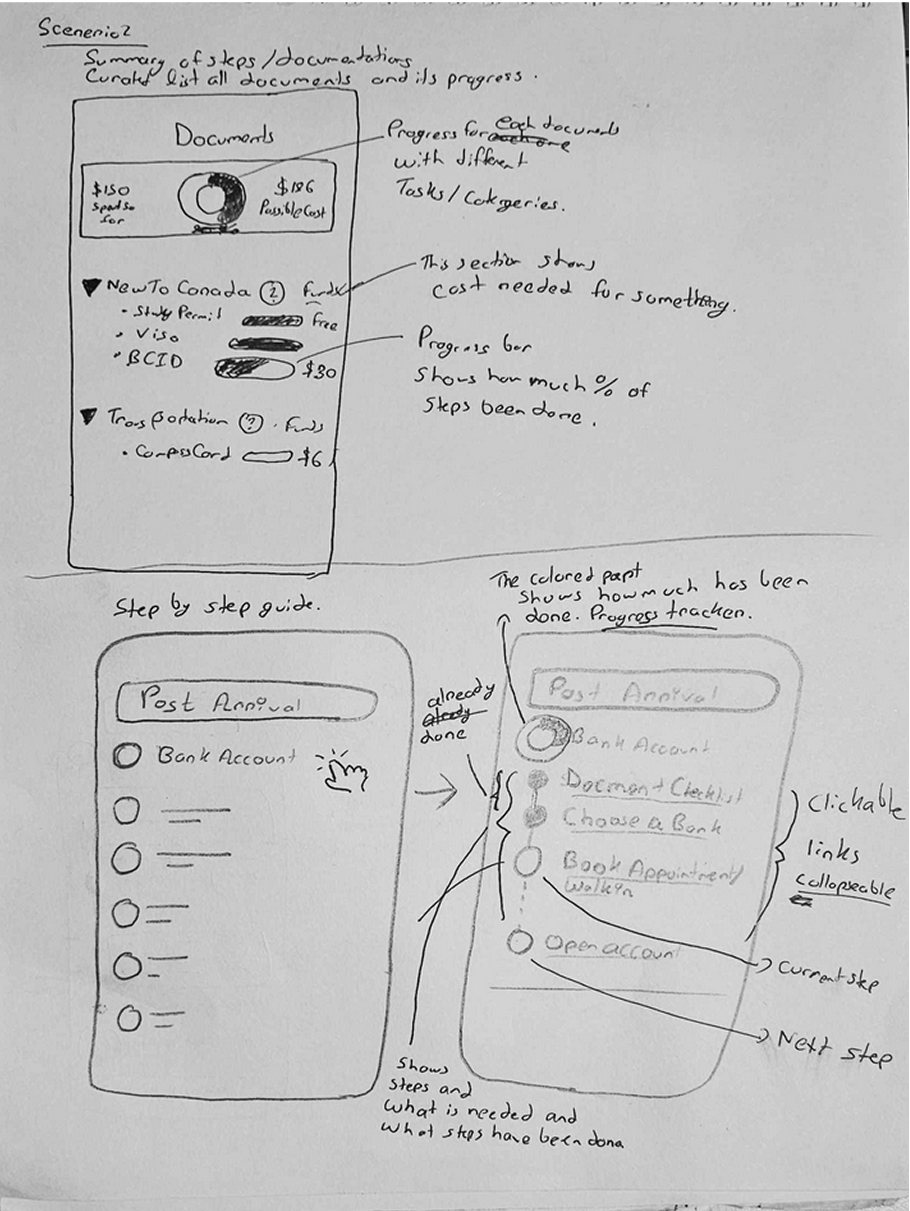 Scenerio2
Summary of steps/documentations
Curated list all documents and its progress.
Documents
$150
Spent so
far
$186
Possible Cost
Progress for each documents
with different
Tasks/Catergeries.
New To Canada ? Funds
• Study Permit Free
• Visa
• BCID $30
Transportation ? . Funds
• CompssCard $6
This section shows
cost needed for something.
Progress bar
shows how much % of
steps been done.
Step by step guide.
Post Arrival
Bank Account
already
already
done
The colored papt
shows how much has been
done. Progress tracker.
Post Arrival
Bank Account
Document Checklist
Choose a Bank
Book Appointment/
Walk in
Open account
Clickable
links
Collapseable
Current step
Next step
Shows
steps and
what is needed and
what steps have been done